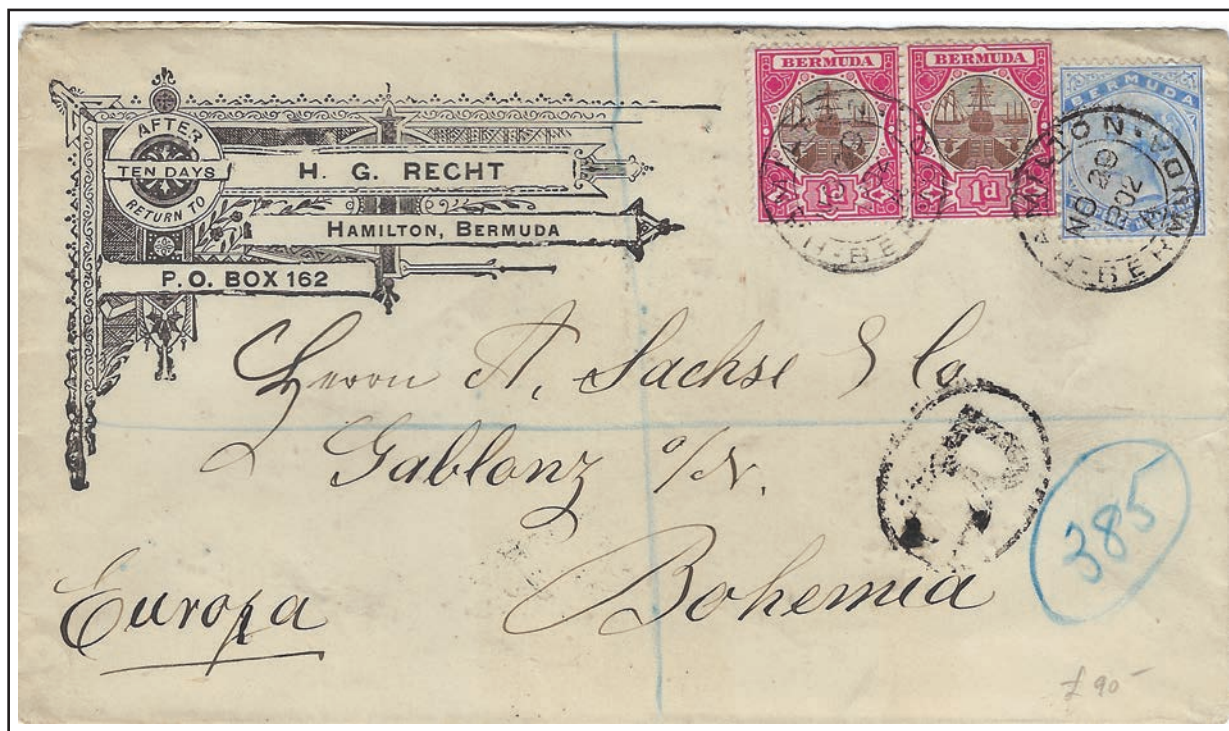 AFTER
TEN DAYS
RETURN TO
H. G. RECHT
HAMILTON, BERMUDA
P.O. BOX 162
BERMUDA
1d
BERMUDA
1d
BERMUDA
HAMILTON·BERMUDA
NO 29
1902
Herrn A. Sachse & Co
Gablonz o/N.
Bohemia
Europa
R
385
£90-